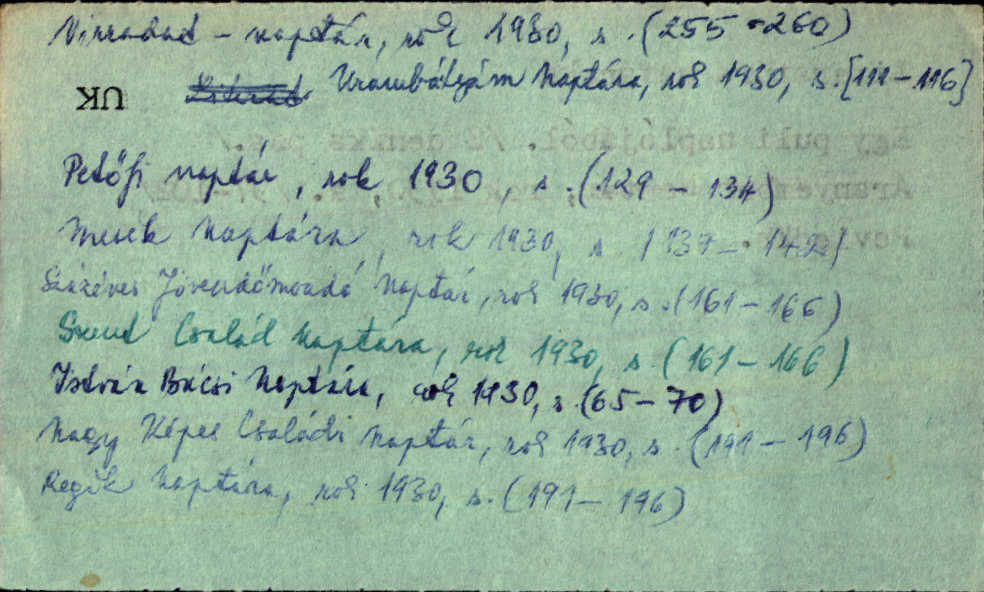 Virradat - naptár, rok 1930, s. (255-260)
Urambátyám Naptára, rok 1930, s. [111-116]
UK
Petőfi naptár, rok 1930, s. (129 - 134)
Mesék Naptára, rok 1930, s. (137 - 142)
Százéves Jövendőmondó Naptár, rok 1930, s. (161-166)
Szent Család Naptára, rok 1930, s. (161-166)
István Bácsi Naptára, rok 1930, s. (65-70)
Nagy Képes Családi Naptár, rok 1930, s. (191-196)
Regék Naptára, rok 1930, s. (191-196)